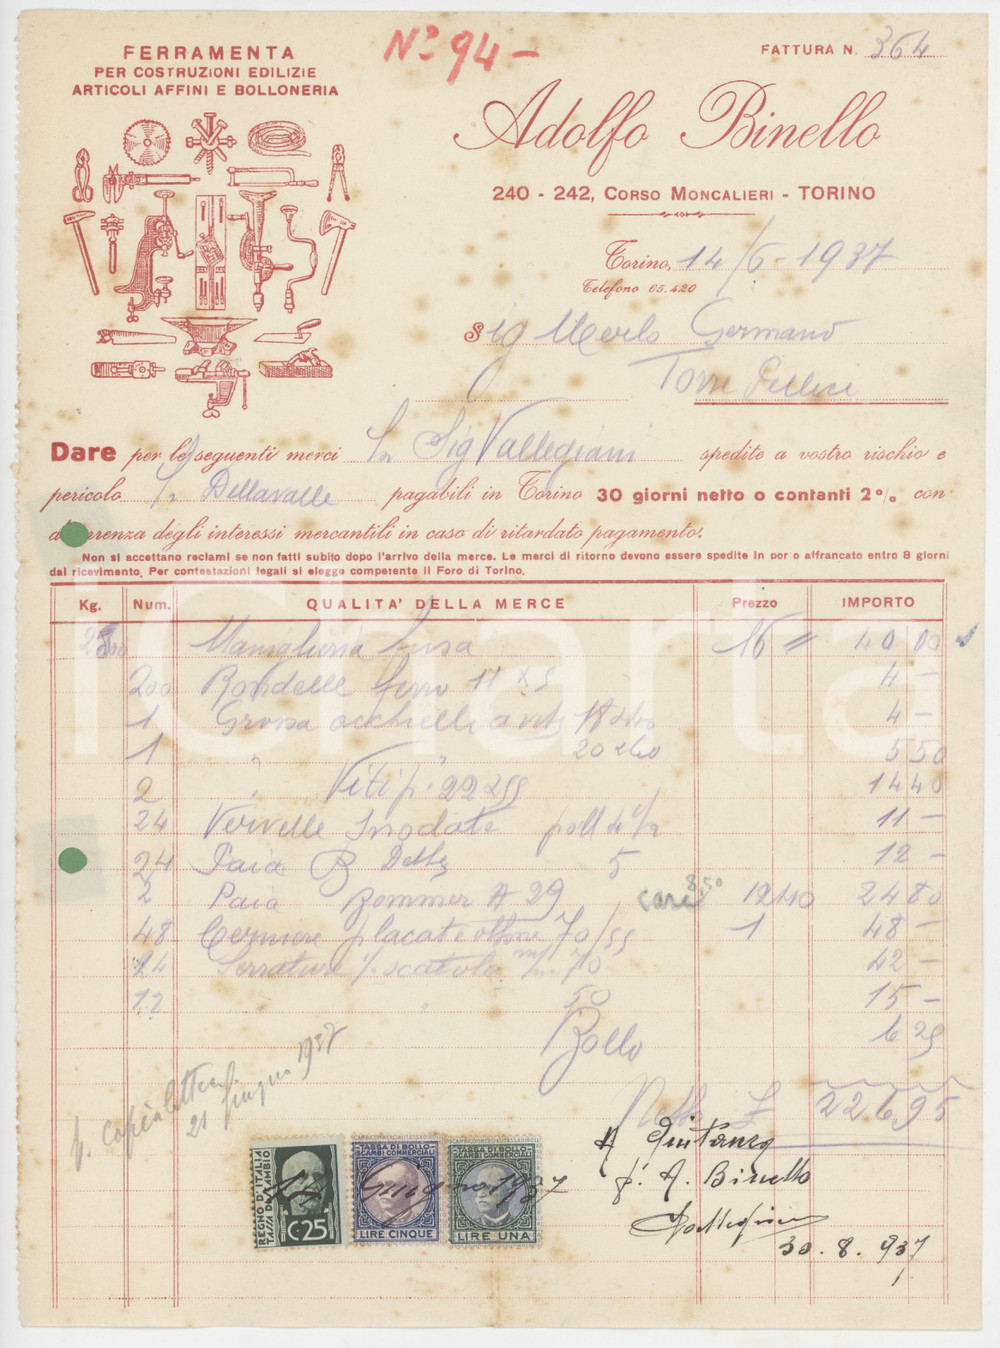 FERRAMENTA
PER COSTRUZIONI EDILIZIE
ARTICOLI AFFINI E BOLLONERIA
Nº 94 -
FATTURA N. 364
Adolfo Binello
240 - 242, CORSO MONCALIERI - TORINO
Torino, 14/6-1937
Telefono 65.420
Sig Merlo Germano
Torre Pellice
Dare per le seguenti merci Sig Vallegiani spedite a vostro rischio e
pericolo Dellavalle pagabili in Torino 30 giorni netto o contanti 2% con
degli interessi mercantili in caso di ritardato pagamento.
Non si accettano reclami se non fatti subito dopo l'arrivo della merce. Le merci di ritorno devono essere spedite in por o affrancato entro 8 giorni
dal ricevimento. Per contestazioni legali si elegge competente il Foro di Torino.
Kg. Num. QUALITA' DELLA MERCE Prezzo IMPORTO
Maniglieria fusa 16 = 40 00
200 Rondelle ferro 4 -
1 Grossa occhielli 18 4 -
1 " " 20 5 50
2 " Viti p. 22 14 40
24 Vervelle Snodate poll 4 1/2 11 -
24 Paia 5 12 -
2 Paia Bommer A 29 8,50 12,40 24 80
48 Cerniere placate ottone 70/55 1 48 -
24 Serrature scatola m/m 70 42 -
12 " " 50 15 -
Bollo 6 25
Netto £ 226 95
p. copialettere
21 Giugno 1937
REGNO D'ITALIA
TASSA DI SCAMBIO
C. 25
TASSA DI BOLLO
SCAMBI COMMERCIALI
LIRE CINQUE
TASSA DI BOLLO
SCAMBI COMMERCIALI
LIRE UNA
14 Giugno 1937
A Quitanza
p. A. Binello
30.8.937
iCharta